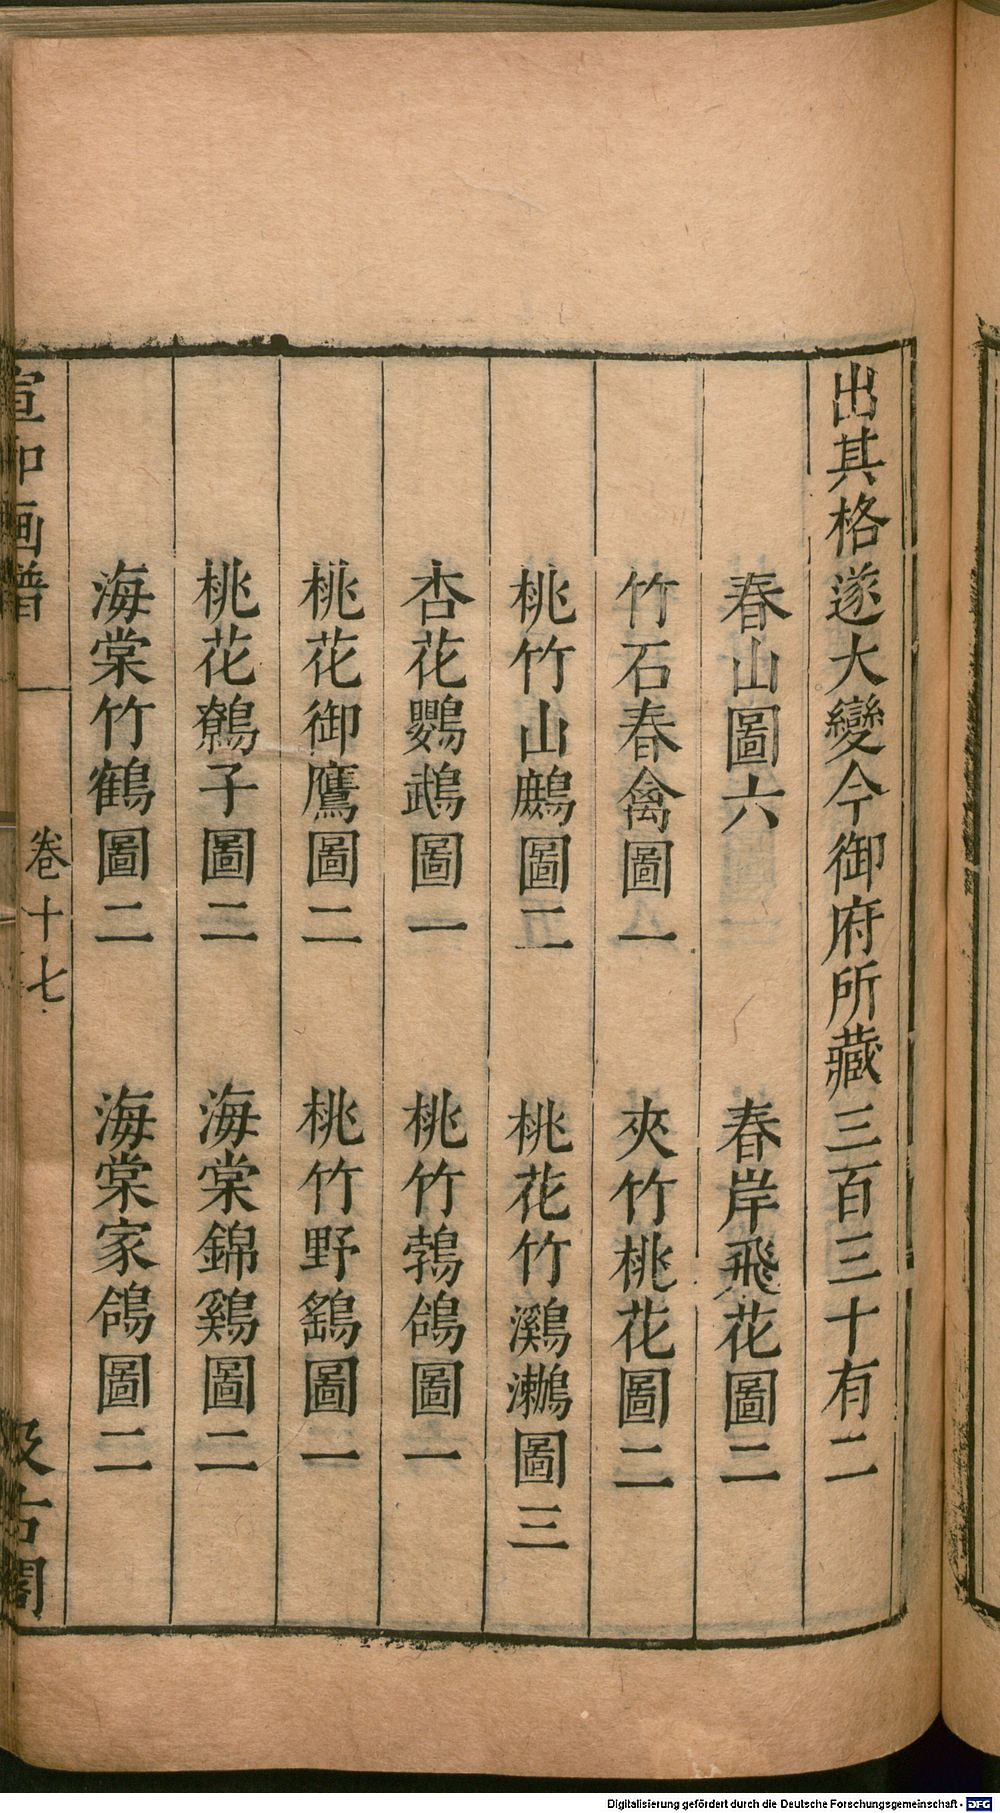 出其格遂大變今御府所藏三百三十有二
春山圖六 春岸飛花圖二
竹石春禽圖一 夾竹桃花圖二
桃竹山鷓圖二 桃花竹鸂鷘圖三
杏花鸚鵡圖一 桃竹鵓鴿圖一
桃花御鷹圖二 桃竹野鷂圖一
桃花鷯子圖二 海棠錦鷄圖二
海棠竹鶴圖二 海棠家鴿圖二
宣和画譜 卷十七 汲古閣
Digitalisierung gefördert durch die Deutsche Forschungsgemeinschaft - DFG